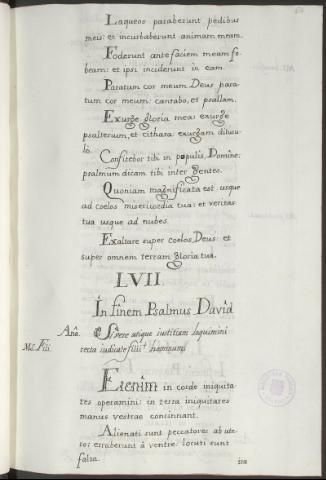 Laqueos paraberunt pedibus
meis: et incurbaberunt animam meam.
Foderunt ante faciem meam fo-
beam: et ipsi inciderunt in eam.
Paratum cor meum Deus para
tum cor meum: cantabo, et psallam.
Exurge gloria mea: exurge
psalterium, et cithara: exurgam dilucu-
lo.
Confitebor tibi in populis, Domine:
psalmum dicam tibi inter gentes.
Quoniam magnificata est usque
ad coelos misericordia tua: et veritas
tua usque ad nubes.
Exaltare super coelos, Deus: et
super omnem terram gloria tua.
LVII.
In finem Psalmus David
Aña. Si vere utique iustitiam loquimini
recta iudicate filii hominum
Etenim in corde iniquita-
tes operamini: in terra iniquitates
manus vestrae concinnant.
Alienati sunt peccatores ab ute-
ro: erraberunt à ventre: locuti sunt
falsa.
ira